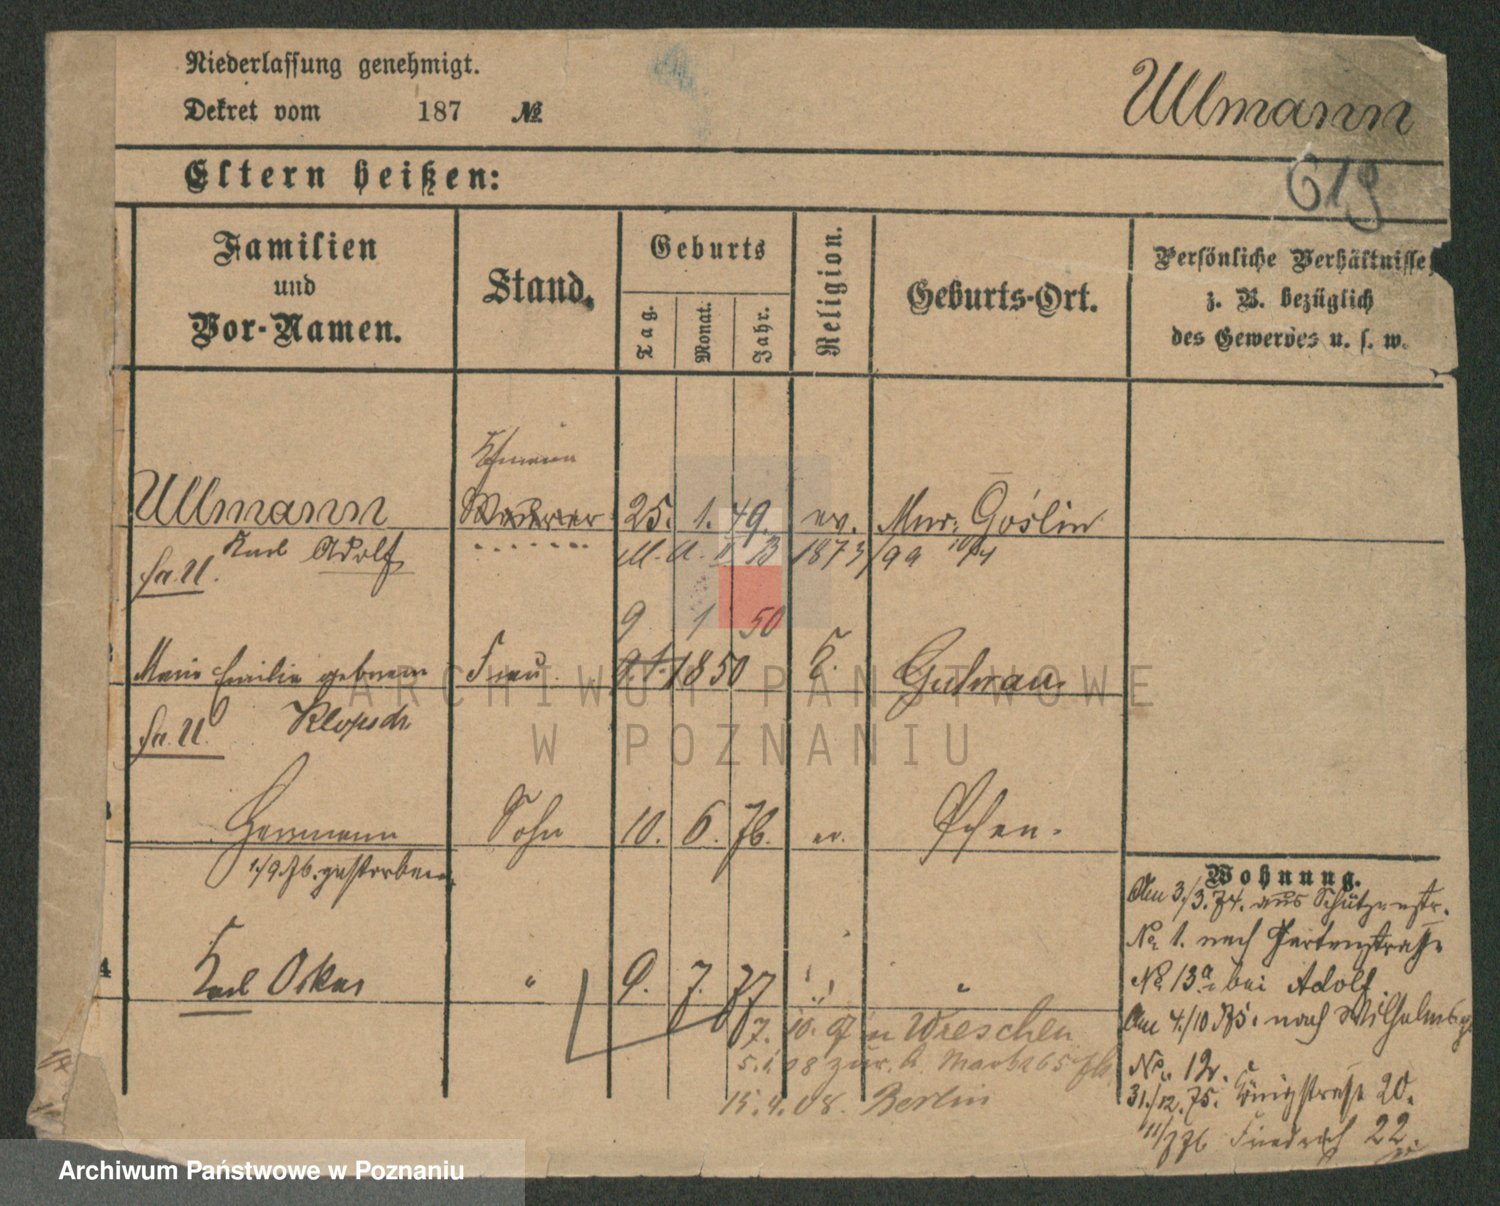 Niederlassung genehmigt.
Ullmann
Dekret vom 187 №
Eltern heißen:
619
Familien und Vor-Namen.
Stand.
Geburts
Tag. Monat. Jahr.
Religion.
Geburts-Ort.
Persönliche Verhältnisse,
z. B. bezüglich
des Gewerbes u. s. w.
Ullmann Maurer 25. 1. 49. ev. Mur. Goslin
Karl Adolf M. A. 1873/99
fr. U.
9 1 50
Marie Emilie geborene Frau 9.1.1850
fr. U. Klopsch
Hermann Sohn 10. 6. 76. ev. Posen.
1/9.76. gestorben
4 Karl Oskar " 9. 7. 77 " "
7. 10. 07 n Wreschen
5. 1. 08 zur.
15. 4. 08. Berlin
Wohnung.
Am 3./3. 74. aus Schützenstr.
No. 1. nach Gartenstraße
No. 13a bei Adolf
Am 4./10 75. nach Wilhelmspl
No. 12.
31./12. 75. Königstraße 20.
Friedrich 22.
ARCHIWUM PAŃSTWOWE
W POZNANIU
Archiwum Państwowe w Poznaniu